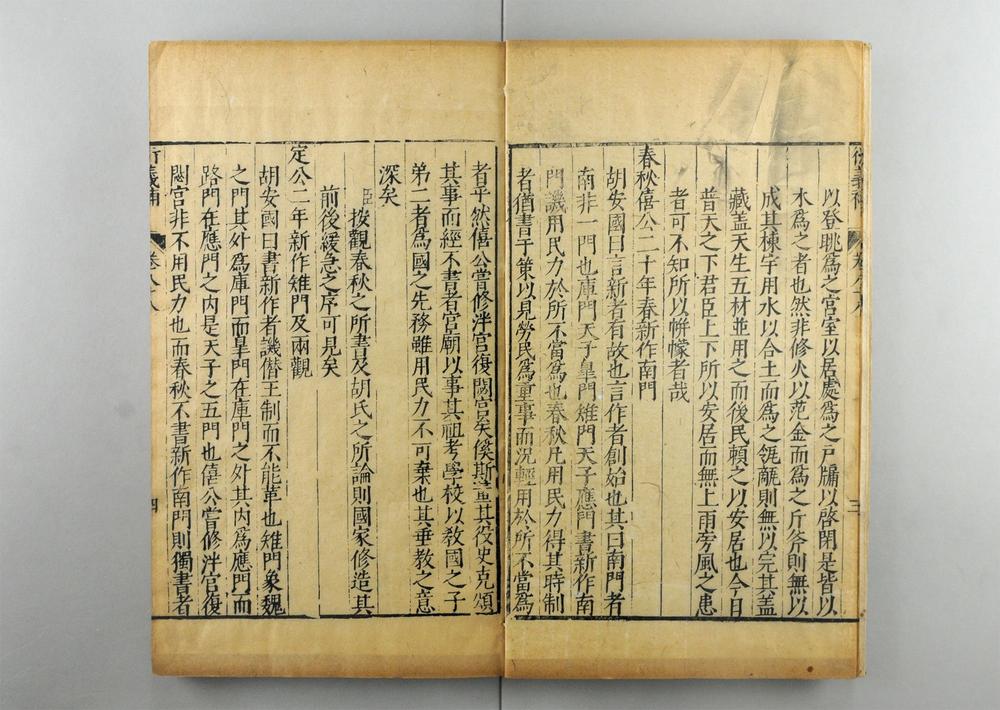 以登眺爲之宫室以居處爲之戸牖以啓閉是皆以
木爲之者也然非修火以范金而爲之斤斧則無以
成其棟宇用水以合土而爲之瓴甋則無以完其盖
藏盖天生五材並用之而後民頼之以安居也今日
普天之下君臣上下所以安居而無上雨旁風之患
者可不知所以帡幪者哉
春秋僖公二十年春新作南門
胡安國曰言新者有故也言作者創始也其曰南門者
南非一門也庫門天子臯門雉門天子應門書新作南
門譏用民力於所不當爲也春秋凡用民力得其時制
者猶書于策以見勞民爲重事而況輕用於所不當爲
者乎然僖公嘗修泮宫復閟宫矣僕斯董其役史克頌
其事而經不書者宫廟以事其祖考學校以敎國之子
弟二者爲國之先務雖用民力不可棄也其垂教之意
深矣
臣按觀春秋之所書及胡氏之所論則國家修造其
前後緩急之序可見矣
定公二年新作雉門及兩觀
胡安國曰書新作者譏僭王制而不能革也雉門象魏
之門其外爲庫門而臯門在庫門之外其内爲應門而
路門在應門之内是天子之五門也僖公嘗修泮宫復
閟宫非不用民力也而春秋不書新作南門則獨書者
衍義補 卷八八 四